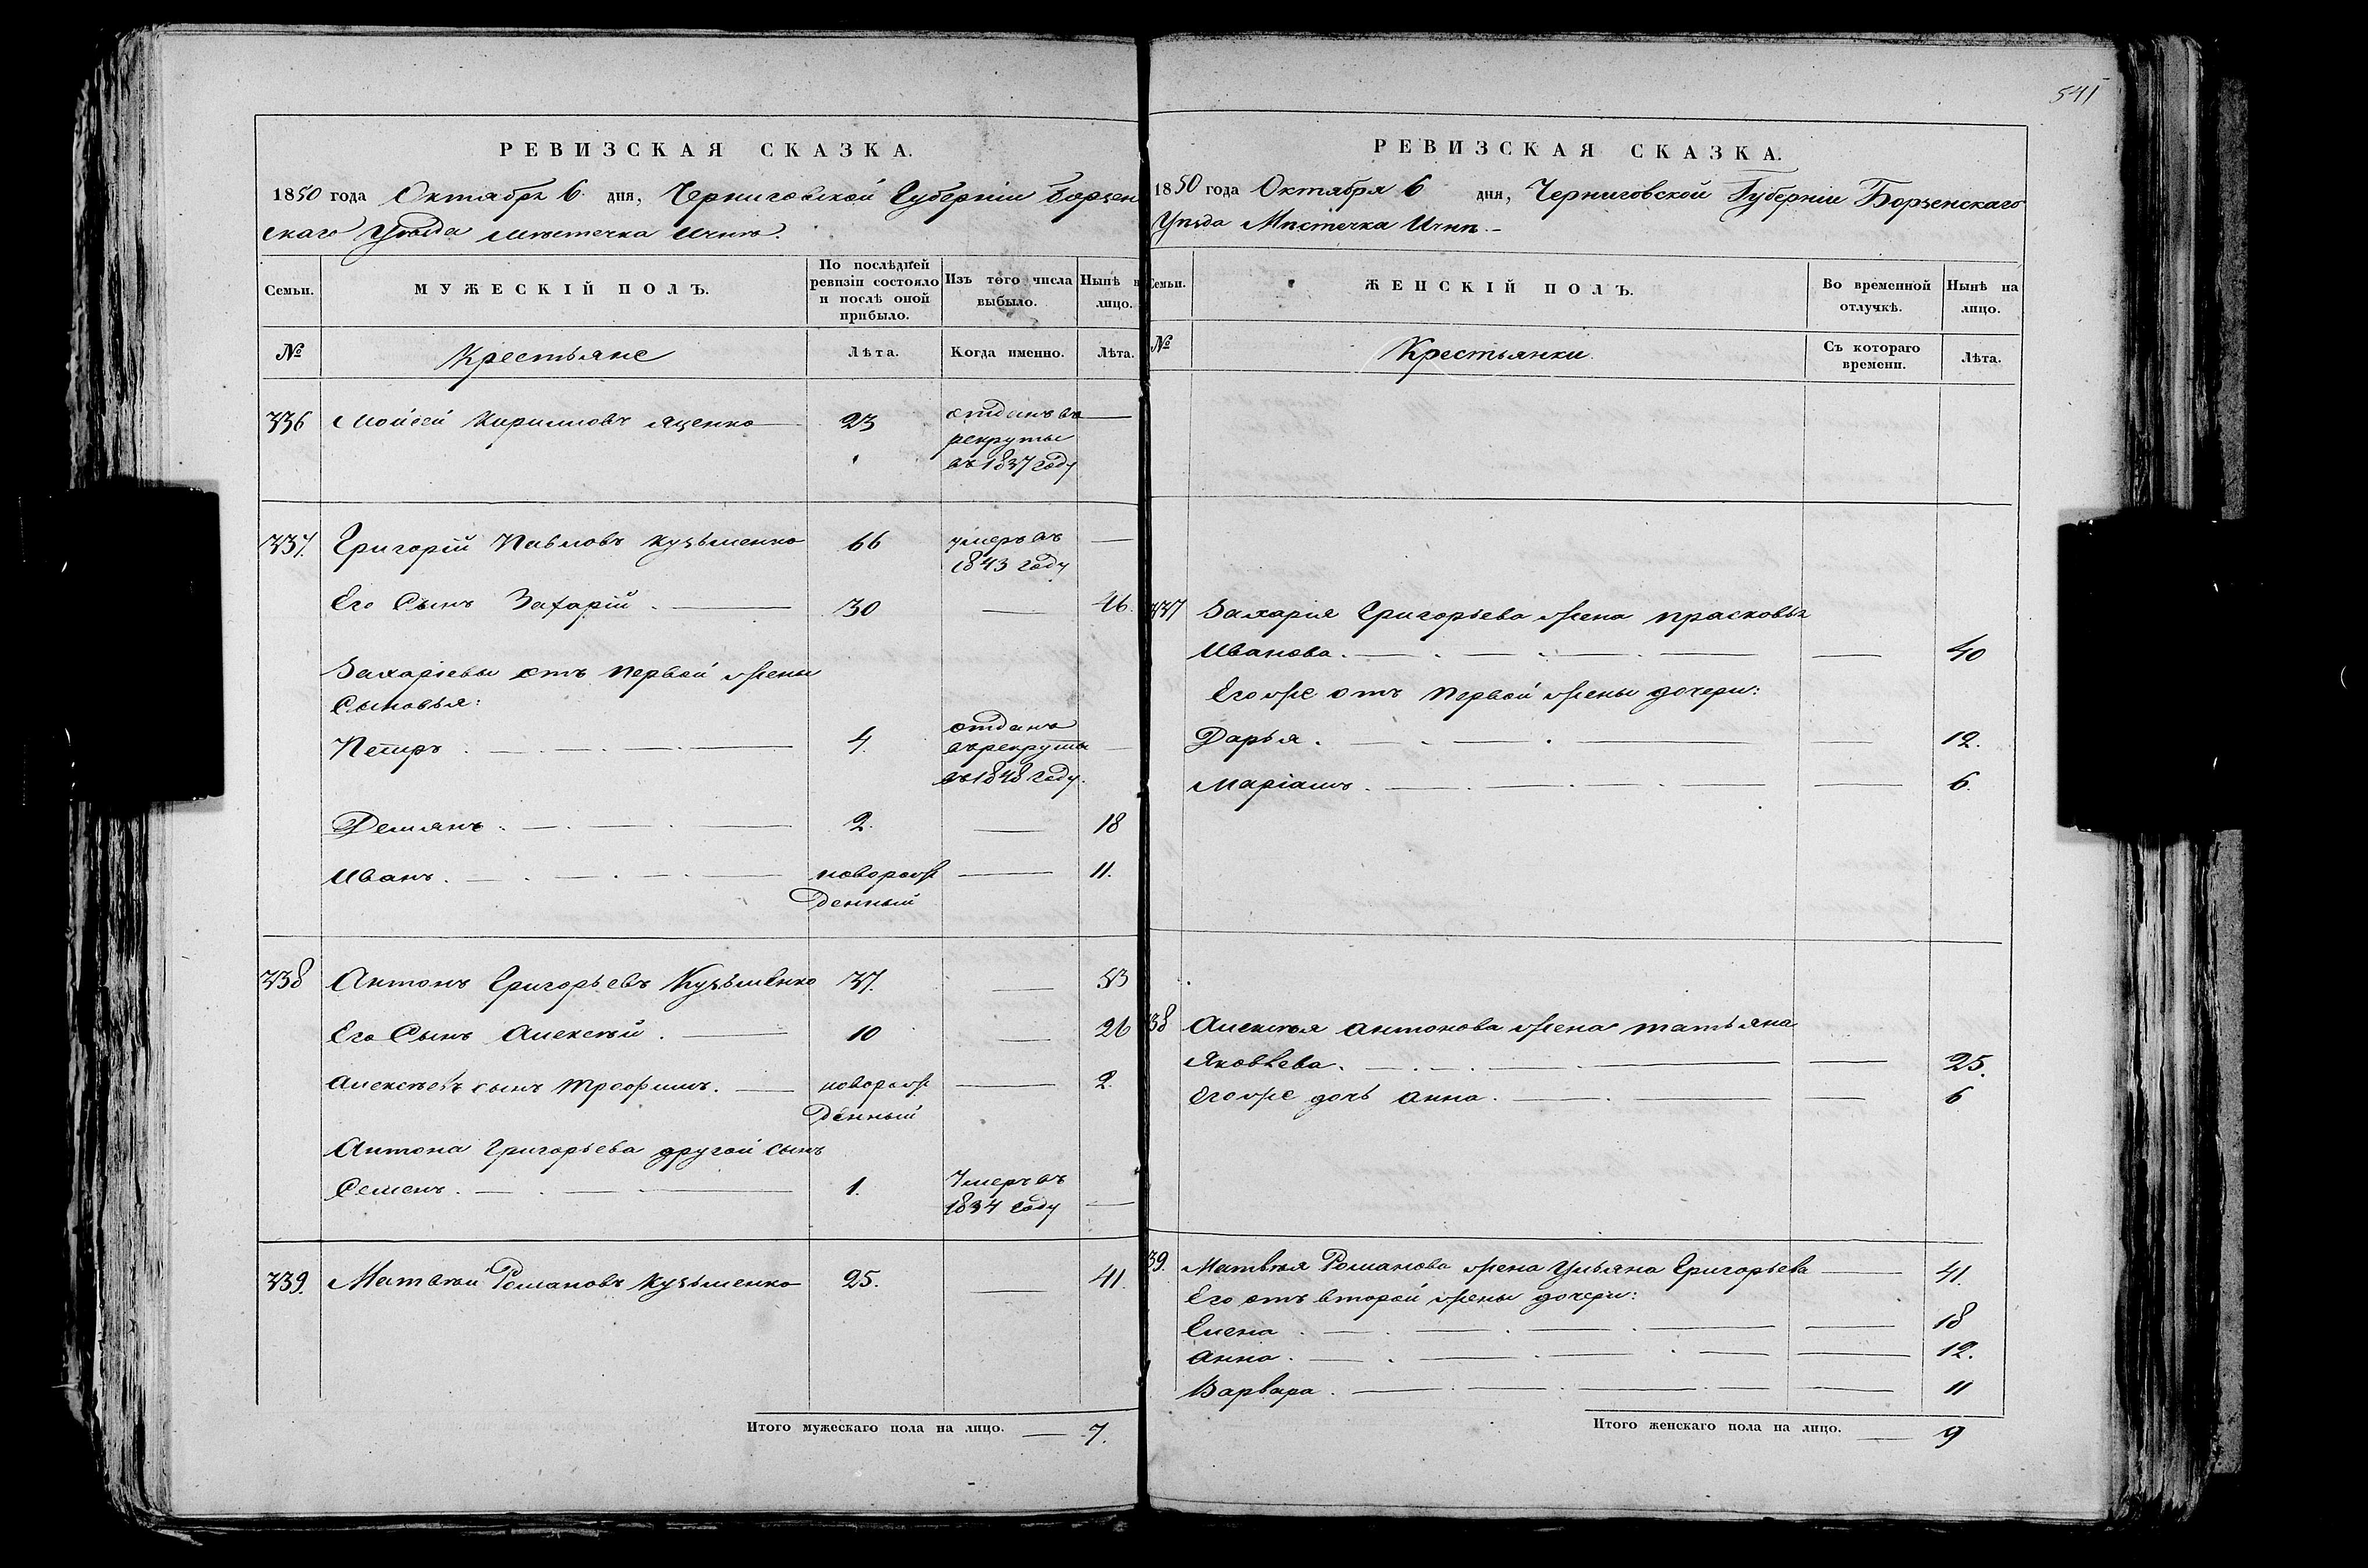 РЕВИЗСКАЯ СКАЗКА.
1850 года Октября 6 дня, Черниговской Губерніи Борзен
скаго Уѣзда Мѣстечка Ични.
Семьи. МУЖЕСКІЙ ПОЛЪ. По послѣдней ревизіи состояло и послѣ оной прибыло. Изъ того числа выбыло. Нынѣ н лицо.
№ Крестьяне Лѣта. Когда именно. Лѣта.
336 Мойсей Кириловъ Яценко 23 отданъ въ —
рекруты
въ 1837 году
337. Григорій Павловъ Кузьменко 66 умеръ въ —
1843 году
Его Сынъ Захарій. — 30 — 46.
Захаріевы отъ первой жены
Сыновья:
Петръ. — 4. отданъ
въ рекруты —
въ 1848 году.
Демянъ. — 2. — 18
Иванъ. — новорож — 11.
денный
338 Антонъ Григорьевъ Кузьменко 37. — 53
Его Сынъ Алексѣй. — 10 — 26
Алексѣевъ сынъ Трофимъ. — новорож — 2.
денный
Антона Григорьева другой сынъ
Семенъ. — 1. Умеръ въ
1834 году —
339. Матвѣй Романовъ Кузьменко 25. — 41.
Итого мужескаго пола на лицо. — 7.
541
РЕВИЗСКАЯ СКАЗКА.
1850 года Октября 6 дня, Черниговской Губерніи Борзенскаго
Уѣзда Мѣстечка Ични. –
Семьи. ЖЕНСКІЙ ПОЛЪ. Во временной отлучкѣ. Нынѣ на лицо.
№ Крестьянки. Съ котораго времени. Лѣта.
337 Захария Григорьева жена Прасковья
Иванова. — — 40
Егоже отъ первой жены дочери:
Дарья. — — 12.
Маріамъ. — — 6.
38 Алексѣя Антонова жена Татьяна
Яковлева. — — 25.
Егоже дочь Анна. — — 6
39. Матвѣя Романова жена Ульяна Григорьева — 41.
Его отъ второй жены дочери:
Елена. — — 18
Анна. — — 12.
Варвара. — — 11
Итого женскаго пола на лицо. — 9